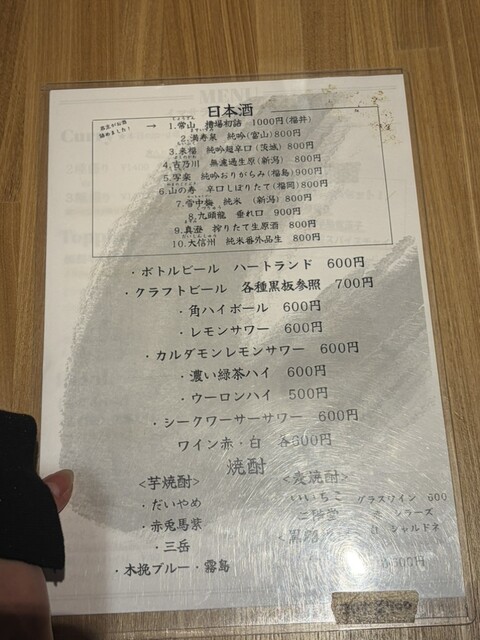 日本酒
店主がお酒
詰めました！
→ 1.常山 槽場初詰 1000円(福井)
2.満寿泉 純吟(富山)800円
3.来福 純吟超辛口(茨城)800円
4.吉乃川 無濾過生原(新潟) 800円
5.写楽 純吟おりがらみ(福島)900円
6.山の寿 辛口しぼりたて(福岡)800円
7.雪中梅 純米 (新潟) 800円
8.九頭龍 垂れ口 900円
9.真澄 搾りたて生原酒 800円
10.大信州 純米番外品生 800円
・ボトルビール ハートランド 600円
・クラフトビール 各種黒板参照 700円
・角ハイボール 600円
・レモンサワー 600円
・カルダモンレモンサワー 600円
・濃い緑茶ハイ 600円
・ウーロンハイ 500円
・シークワーサーサワー 600円
ワイン赤・白 各600円
焼酎
<芋焼酎>
・だいやめ
・赤兎馬紫
・三岳
・木挽ブルー・霧島
<麦焼酎>
いいちこ
二階堂
グラスワイン 600
シラーズ
シャルドネ